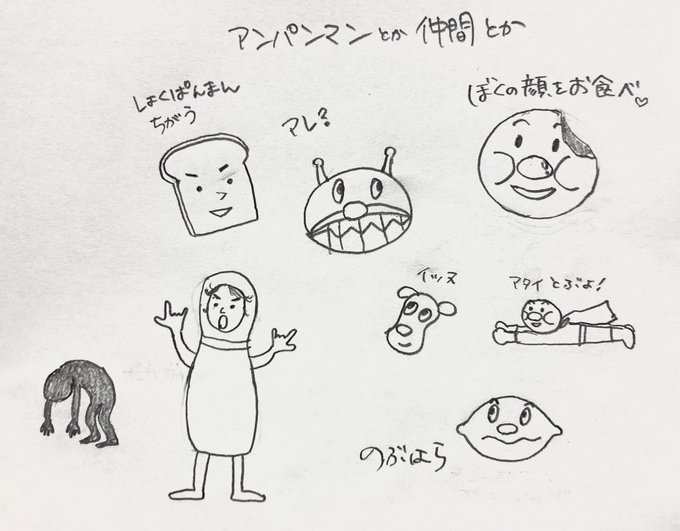 アンパンマンとか仲間とか
ぼくの顔をお食べ♡
しょくぱんまん
ちがう
アレ?
イッヌ
アタイとぶよ!
のぶはら